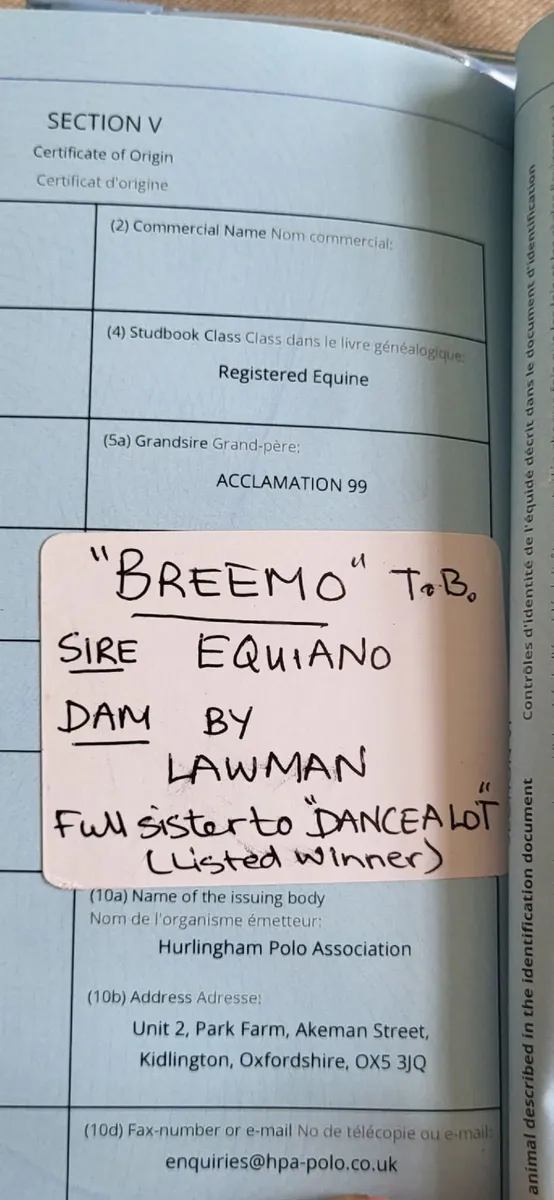 SECTION V
Certificate of Origin
Certificat d'origine
(2) Commercial Name Nom commercial:
(4) Studbook Class Class dans le livre généalogique:
Registered Equine
(5a) Grandsire Grand-père:
ACCLAMATION 99
"BREEMO" T.B.
SIRE EQUIANO
DAM BY
LAWMAN
Full sister to "DANCEALOT"
(Listed Winner)
(10a) Name of the issuing body
Nom de l'organisme émetteur:
Hurlingham Polo Association
(10b) Address Adresse:
Unit 2, Park Farm, Akeman Street,
Kidlington, Oxfordshire, OX5 3JQ
(10d) Fax-number or e-mail No de télécopie ou e-mail:
enquiries@hpa-polo.co.uk
animal described in the identification document
Contrôles d'identité de l'équidé décrit dans le document d'identification